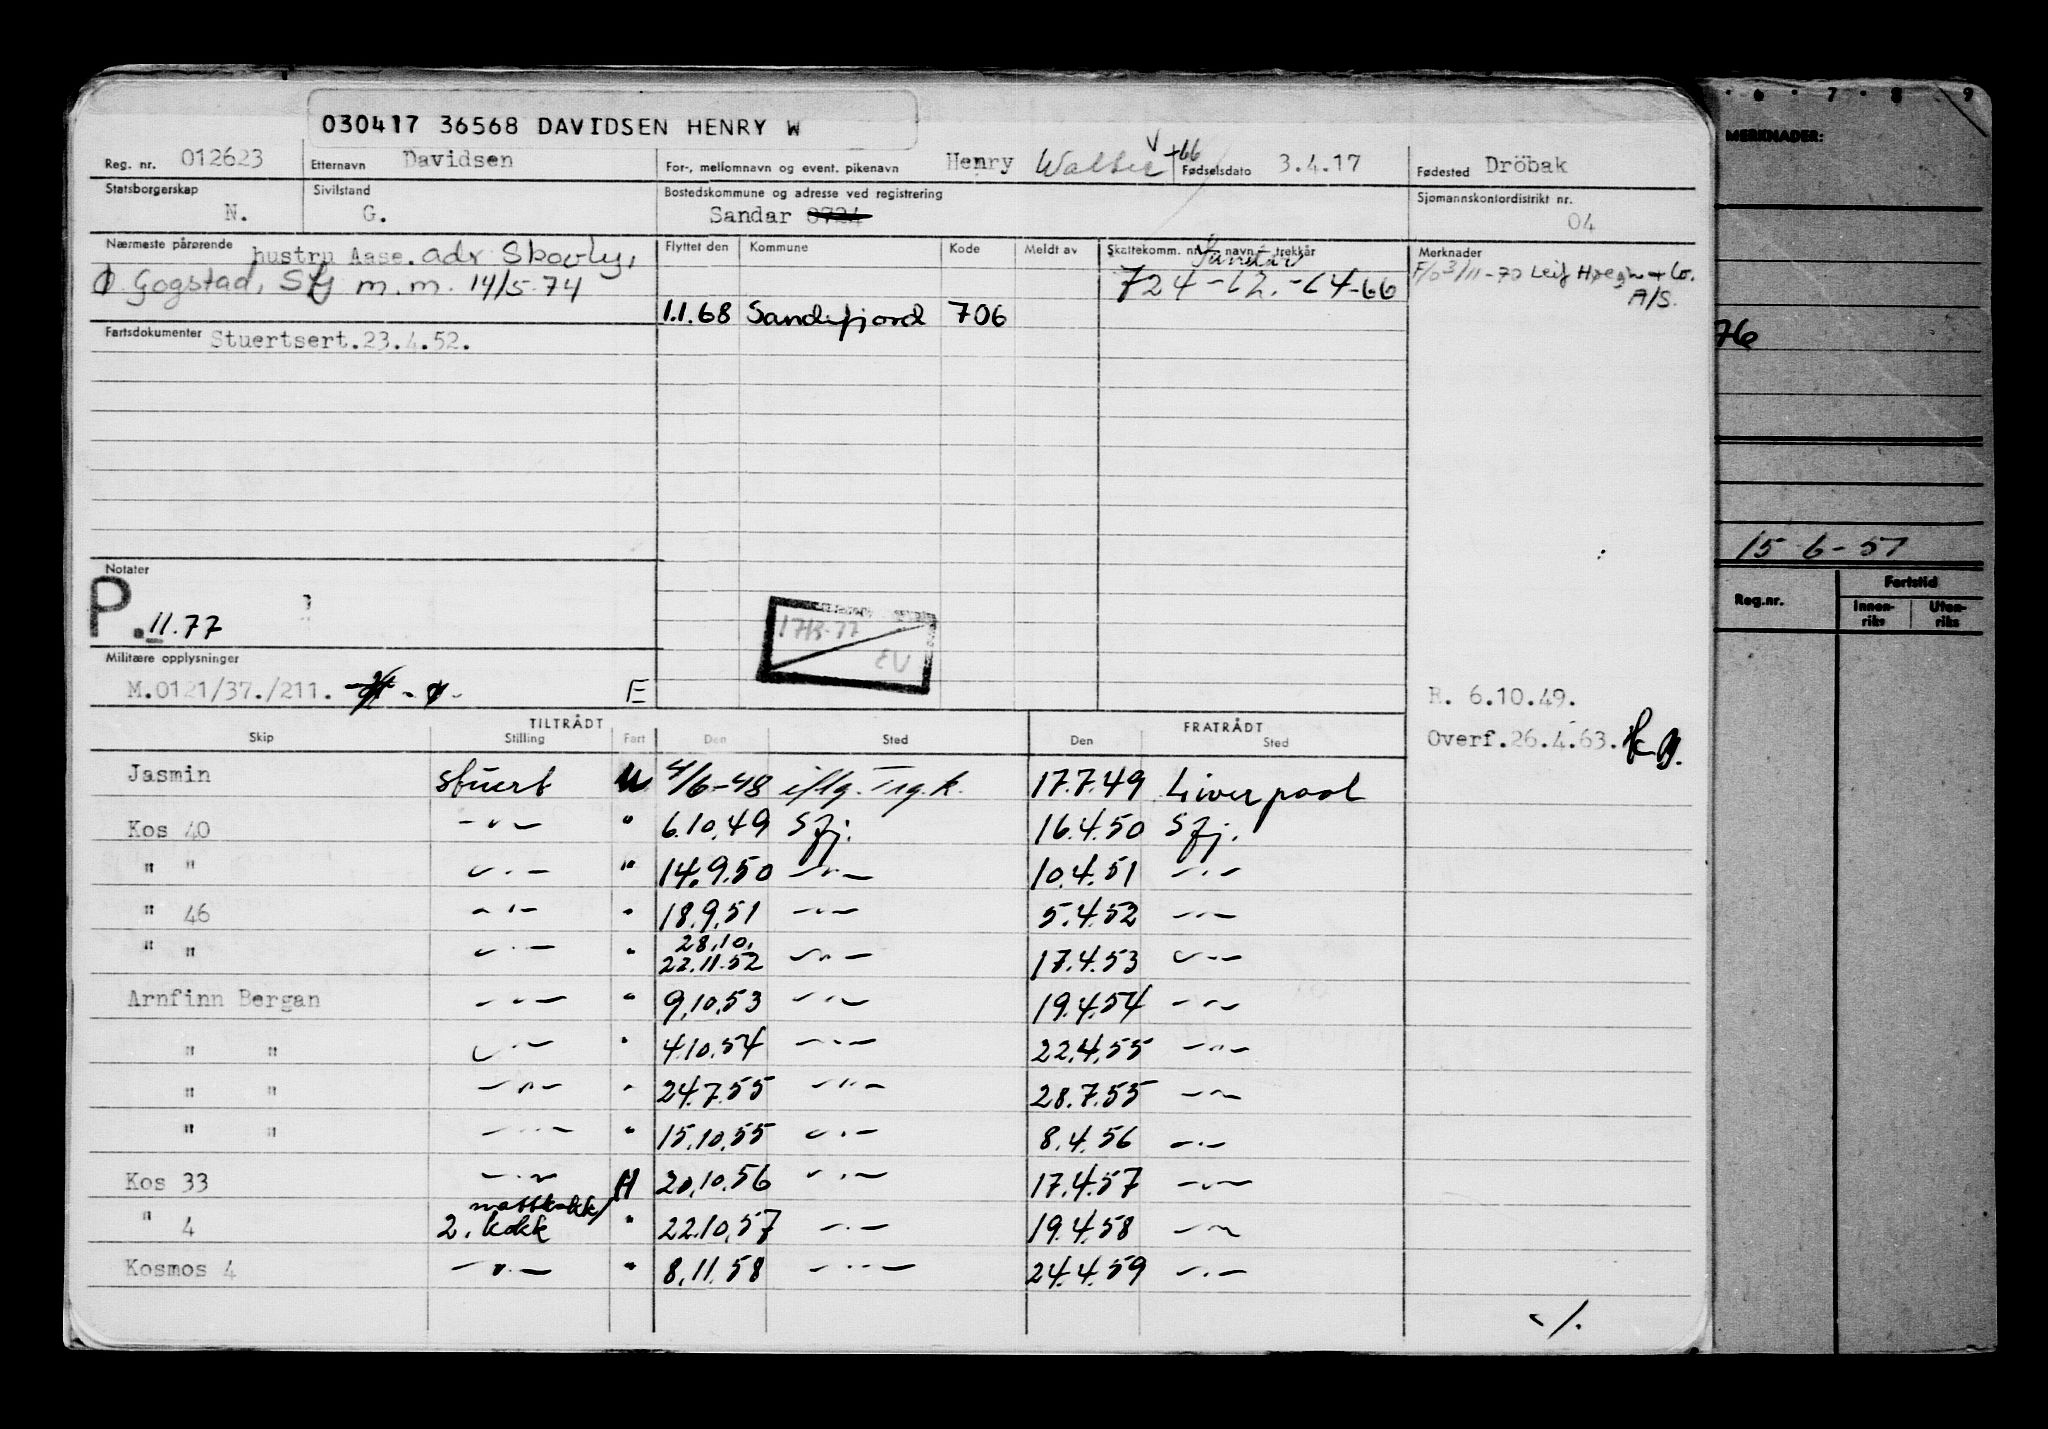 030417 36568 DAVIDSEN HENRY W
Reg. nr. 012623 Etternavn Davidsen For-, mellomnavn og event. pikenavn Henry Walter Fødselsdato 3.4.17 Fødested Dröbak
Statsborgerskap N. Sivilstand G. Bostedskommune og adresse ved registrering Sandar 0724 Sjømannskontordistrikt nr. 04
Nærmeste pårørende hustru Aase. adr Skovly,
Gogstad, Sfj m.m. 14/5-74
Flyttet den Kommune Kode Meldt av Skattekomm. nr., navn, trekkår Merknader
724 -62.-64-66
F/o 3/11-70 Leif Høegh + Co. A/S.
1.1.68 Sandefjord 706
Fartsdokumenter Stuertsert.23.4.52.
Notater
P. 11.77
Militære opplysninger
M.0121/37./211. E
R. 6.10.49.
Overf.26.4.63.
TILTRÅDT FRATRÅDT
Skip Stilling Fart Den Sted Den Sted
Jasmin stuert U 4/6-48 iflg. Trg.k. 17.7.49 Liverpool
Kos 40 -"- " 6.10.49 Sfj. 16.4.50 Sfj.
" " -"- " 14.9.50 -"- 10.4.51 -"-
" 46 -"- " 18.9.51 -"- 5.4.52 -"-
" " -"- " 28.10. 22.11.52 -"- 17.4.53 -"-
Arnfinn Bergan -"- " 9.10.53 -"- 19.4.54 -"-
" " -"- " 4.10.54 -"- 22.4.55 -"-
" " -"- " 24.7.55 -"- 28.7.55 -"-
" " -"- " 15.10.55 -"- 8.4.56 -"-
Kos 33 -"- H 20.10.56 -"- 17.4.57 -"-
" 4 nattkokk/ 2. kokk " 22.10.57 -"- 19.4.58 -"-
Kosmos 4 -"- " 8.11.58 -"- 24.4.59 -"-
./.
6 7 8 9
MERKNADER:
76
15-6-57
Reg.nr. Fartstid
Innenriks Utenriks